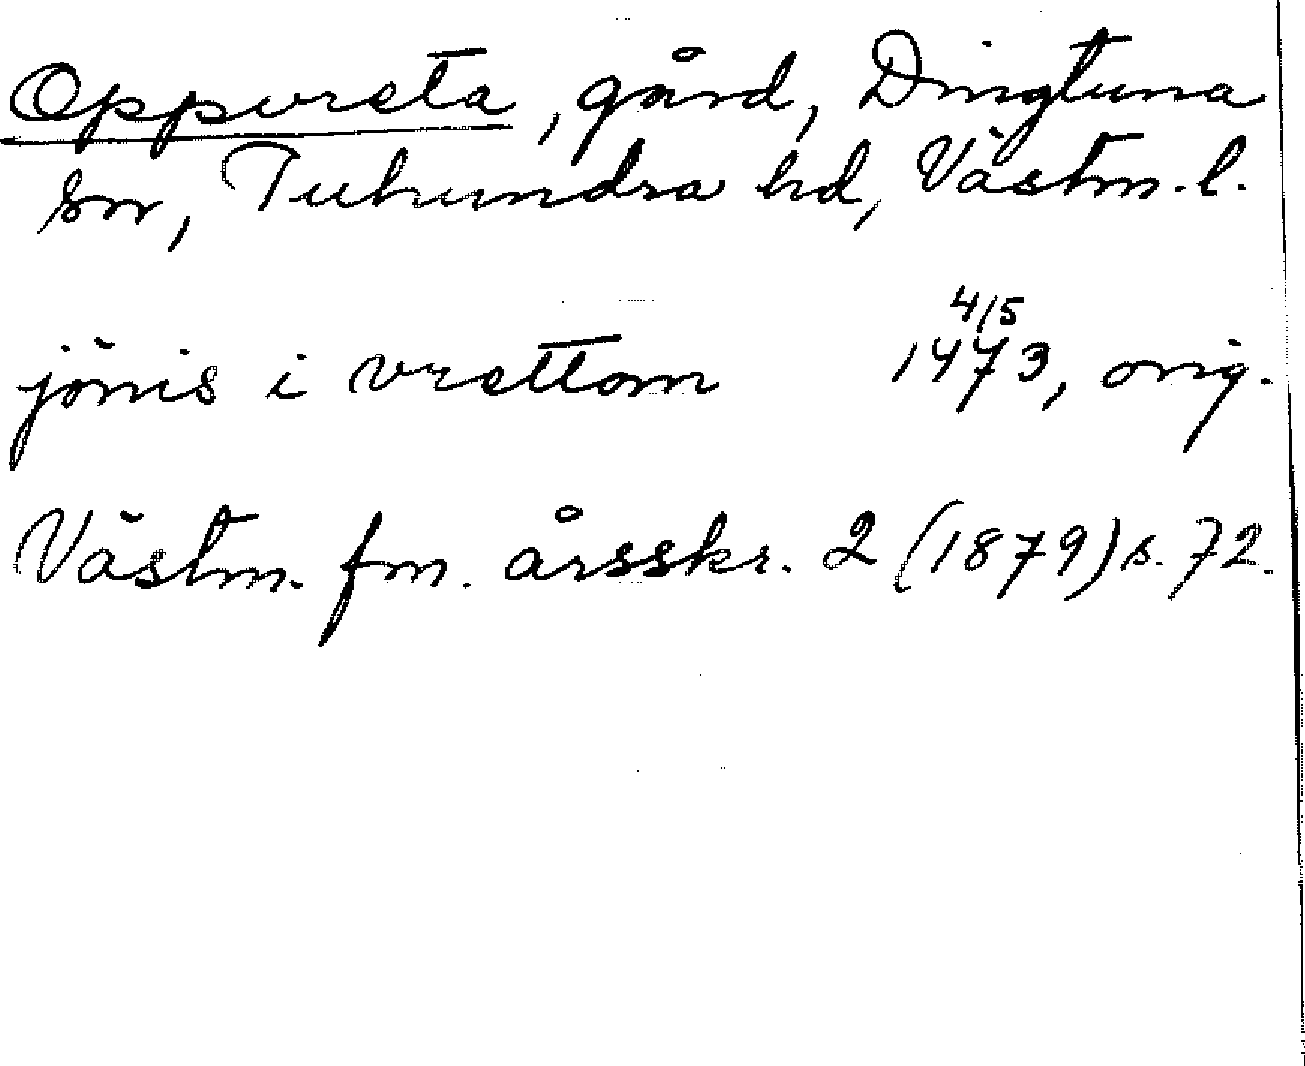 Oppvreta, gård, Dingtuna
sn, Tuhundra hd, Västm. l.
4/5
jönis i vrettom 1473, orig.
Västm. fm. årsskr. 2 (1879) s. 72.